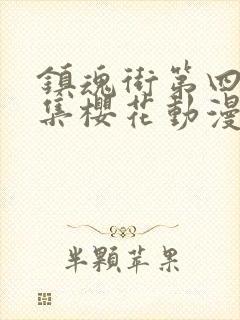 鎮魂街第四
集櫻花動漫
半顆苹果